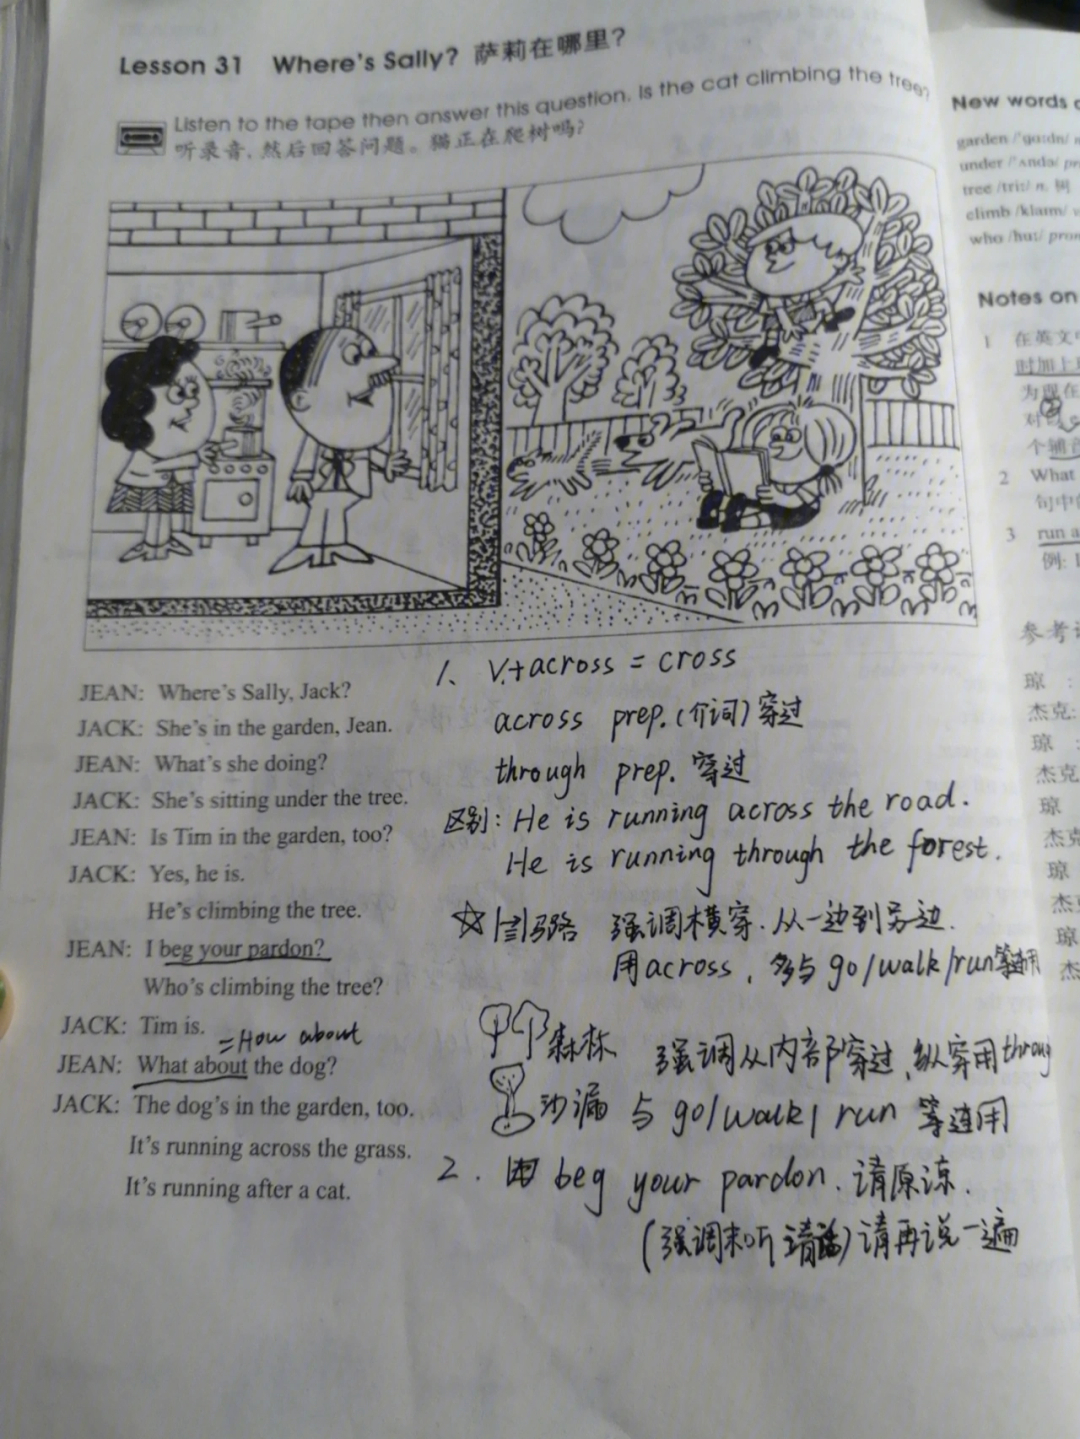 Lesson 31 Where's Sally? 萨莉在哪里?
Listen to the tape then answer this question. Is the cat climbing the tree?
听录音,然后回答问题。猫正在爬树吗?
JEAN: Where's Sally, Jack?
JACK: She's in the garden, Jean.
JEAN: What's she doing?
JACK: She's sitting under the tree.
JEAN: Is Tim in the garden, too?
JACK: Yes, he is.
He's climbing the tree.
JEAN: I beg your pardon?
Who's climbing the tree?
JACK: Tim is.
=How about
JEAN: What about the dog?
JACK: The dog's in the garden, too.
It's running across the grass.
It's running after a cat.
1、 V.+across = cross
across prep.(介词)穿过
through prep. 穿过
区别: He is running across the road.
He is running through the forest.
☆ 马路 强调横穿.从一边到另边.
用across, 多与 go/walk/run等连用
森林 强调从内部穿过,纵穿用throug
沙漏 与 go/walk/ run 等连用
2. beg your pardon. 请原谅.
(强调未听清话)请再说一遍
New words
garden /'gɑ:dn/
under /'ʌndə/
tree /tri:/ n. 树
climb /klaim/
who /hu:/ pron
Notes on
1 在英文
时加上
为现在
对
个辅音
2 What
句中
3 run a
例:
参考
琼 :
杰克:
琼 :
杰克
琼
杰克
琼
杰
琼
杰